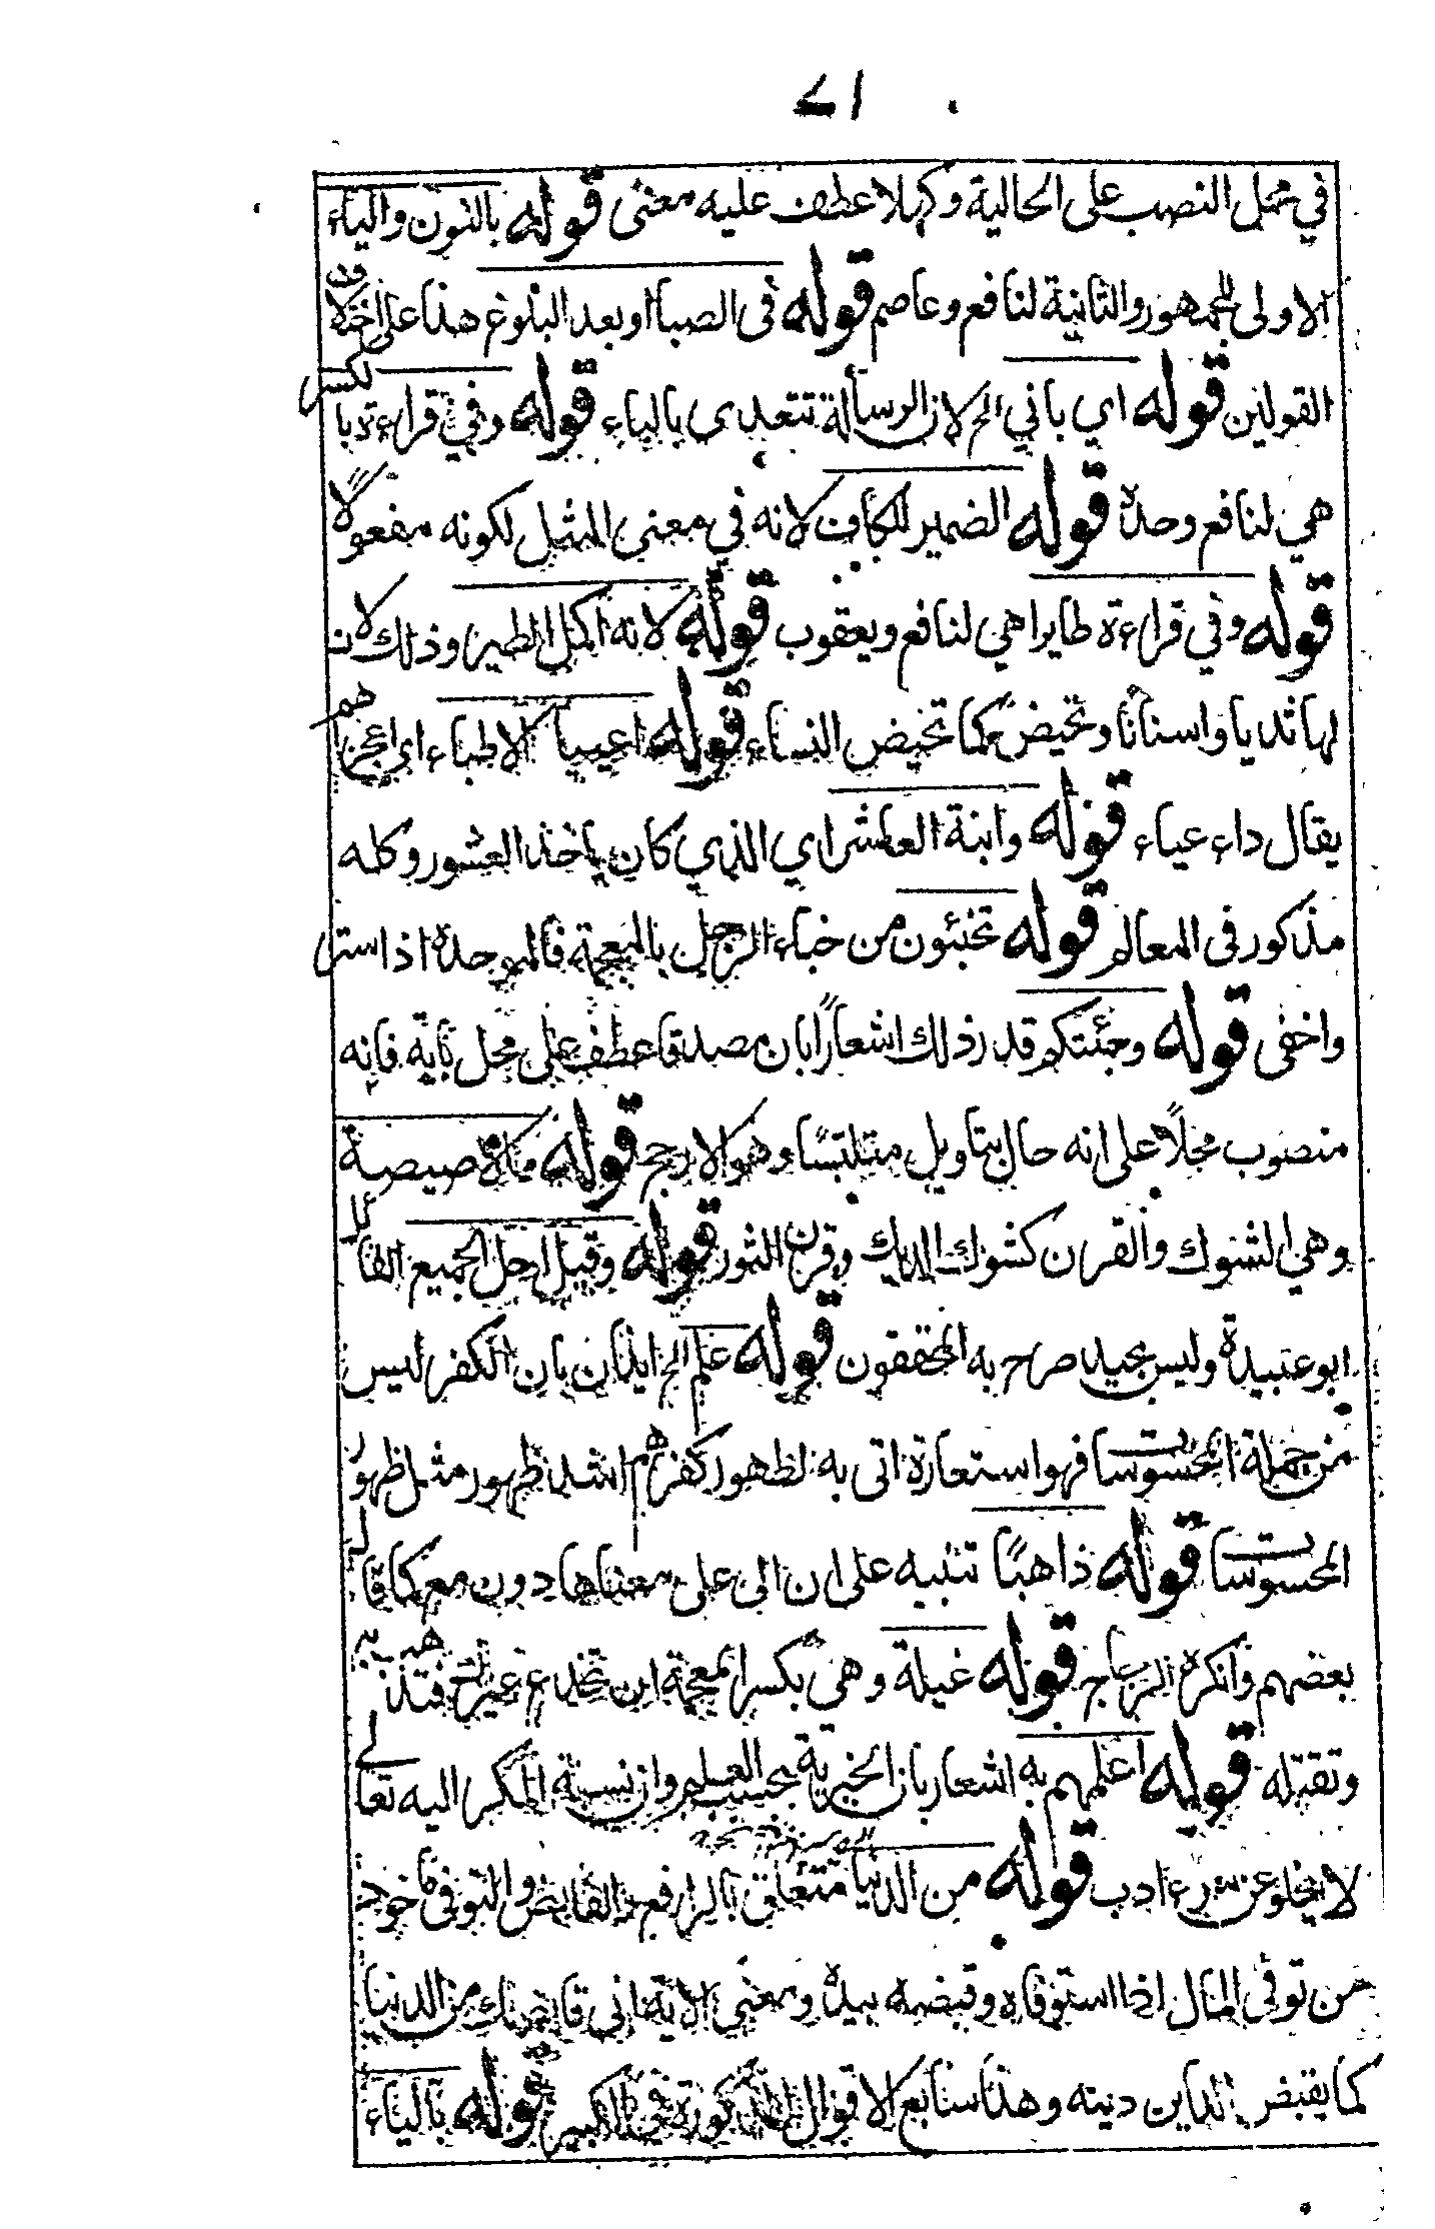 ٧١
في محل النصب على الحالية وكهلا عطف عليه معنى قوله بالنون والياء
الاولى للجمهور والثانية لنافع وعاصم قوله في الصبا او بعد البلوغ هذا على اختلاف
القولين قوله اي باني الخ لان الرسالة تتعدى بالباء قوله وفي قراءة بالكسر
هي لنافع وحده قوله الضمير للكاف لانه في معنى المثل لكونه مفعولا
قوله وفي قراءة طايرا هي لنافع ويعقوب قوله لانه اكمل الطير وذلك لان
لها ثديا واسنانا وتحيض كما تحيض النساء قوله اعييا الاطباء اي اعجزاهم
يقال داء عياء قوله وابنة العاشر اي الذي كان ياخذ العشور وكله
مذكور في المعالم قوله تخبئون من خباء الرجل بالمعجمة فالموحدة اذا استر
واخفى قوله وجئتكم قدر ذلك اشعارا بان مصدقا عطف على محل باية فانه
منصوب محلا على انه حال بتاويل متلبسا وهو الارجح قوله صيصة
وهي الشوك والقرن كشوك الديك وقرن الثور قوله وقيل احل الجميع القائل
ابو عبيدة وليس بجيد صرح به المحققون قوله علم الخ ايذان بان الكفر ليس
من جملة المحسوسات فهو استعارة اتى به لظهور كفرهم اشد ظهور مثل ظهور
المحسوسات قوله ذاهبا تنبيه على ان الى على معناها دون مع كما قاله
بعضهم وانكره الزجاج قوله غيلة وهي بكسر المعجمة ان تخدع غيرك فتذهب به
وتقتله قوله اعلمهم به اشعار بان الخيرية بحسب العلم وان نسبة المكر اليه تعالى
لا يخلو عن سوء ادب قوله من الدنيا متعلق بالرافع والقابض والتوفي ماخوذ
من توفي المال اذا استوفاه وقبضه بيده ومعنى الاية اني قابضك من الدنيا
كما يقبض الداين دينه وهذا سابع الاقوال المذكورة في الكبير قوله بالياء